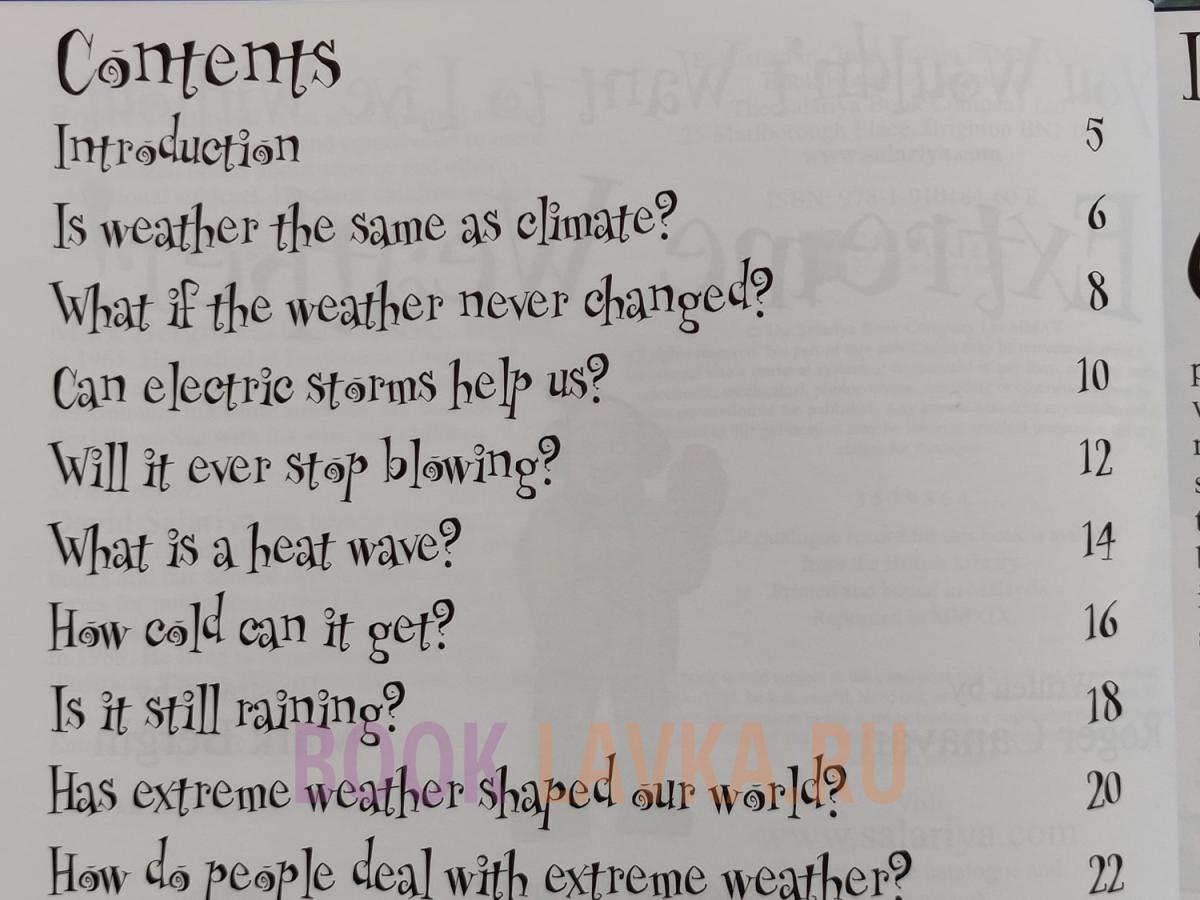 Contents
Introduction 5
Is weather the same as climate? 6
What if the weather never changed? 8
Can electric storms help us? 10
Will it ever stop blowing? 12
What is a heat wave? 14
How cold can it get? 16
Is it still raining? 18
BOOK LAVKA.RU
Has extreme weather shaped our world? 20
How do people deal with extreme weather? 22